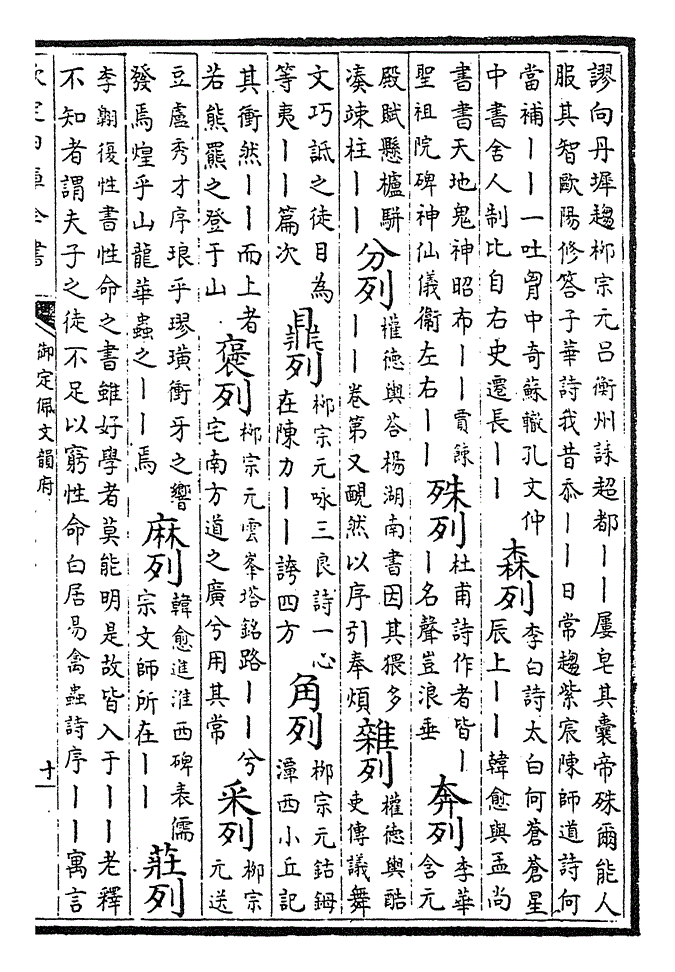 謬向丹墀趨柳宗元呂衡州誄超都丨丨屢皂其囊帝殊爾能人
服其智歐陽修答子華詩我昔忝丨丨日常趨紫宸陳師道詩何
當補丨丨一吐胷中奇蘇轍孔文仲
中書舍人制比自右史遷長丨丨
森列
李白詩太白何蒼蒼星
辰上丨丨韓愈與孟尚
書書天地鬼神昭布丨丨賈餗
聖祖院碑神仙儀衞左右丨丨
殊列
杜甫詩作者皆丨
丨名聲豈浪垂
奔列
李華
含元
殿賦懸櫨騈
凑竦柱丨丨
分列
權德輿荅楊湖南書因其猥多
丨丨卷第又靦然以序引奉煩
雜列
權德輿酷
吏傳議舞
文巧詆之徒目為
等夷丨丨篇次
鼎列
柳宗元咏三良詩一心
在陳力丨丨誇四方
角列
柳宗元鈷鉧
潭西小丘記
其衝然丨丨而上者
若熊羆之登于山
褒列
柳宗元雲峯塔銘路丨丨兮
宅南方道之廣兮用其常
采列
柳宗
元送
豆盧秀才序琅乎璆璜衝牙之響
發焉煌乎山龍華蟲之丨丨焉
麻列
韓愈進淮西碑表儒
宗文師所在丨丨
莊列
李翺復性書性命之書雖好學者莫能明是故皆入于丨丨老釋
不知者謂夫子之徒不足以窮性命白居易禽蟲詩序丨丨寓言
欽定四庫全書
御定佩文韻府
十一